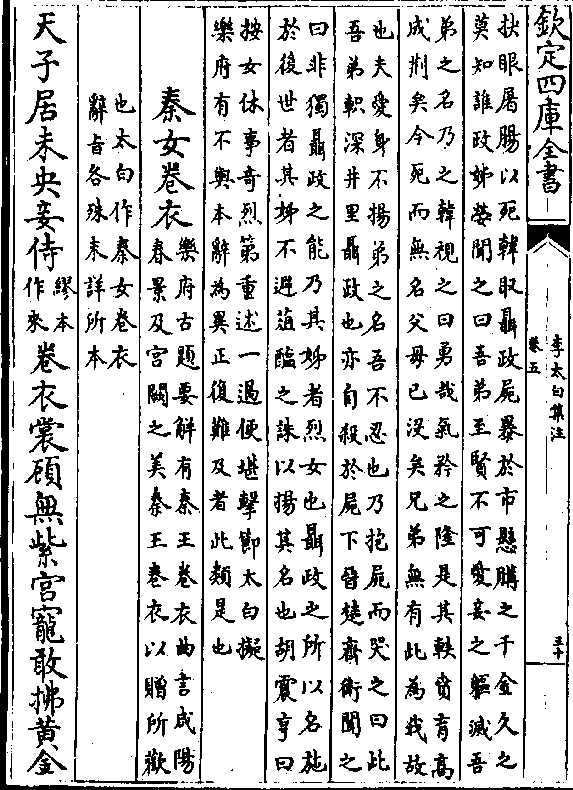 欽定四庫全書
李太白集注
卷五
三十
抉眼屠腸以死韓取聶政屍暴於市懸購之千金久之
莫知誰政姊嫈聞之曰吾弟至賢不可愛妾之軀滅吾
弟之名乃之韓視之曰勇哉氣矜之隆是其軼賁育高
成荆矣今死而無名父母已没矣兄弟無有此為我故
也夫愛身不揚弟之名吾不忍也乃抱屍而哭之曰此
吾弟軹深井里聶政也亦自殺於屍下晉楚齊衛聞之
曰非獨聶政之能乃其姊者烈女也聶政之所以名施
於後世者其姊不避菹醢之誅以揚其名也胡震亨曰
按女休事奇烈第重述一過便堪擊節太白擬
樂府有不與本辭為異正復難及者此類是也
秦女卷衣
樂府古題要解有秦王卷衣曲言咸陽
春景及宫闕之美秦王卷衣以贈所歡
也太白作秦女卷衣
辭旨各殊未詳所本
天子居未央妾侍繆本作來卷衣裳顧無紫宫寵敢拂黄金